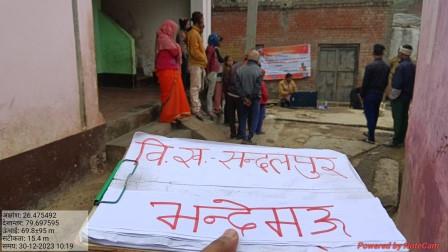 वि.ख. सन्दलपुर
भन्देमऊ
अक्षांश: 26.475492
देशान्तर: 79.697595
ऊंचाई: 69.8±95 m
सटीकता: 15.4 m
समय: 30-12-2023 10:19
Powered by NoteCam